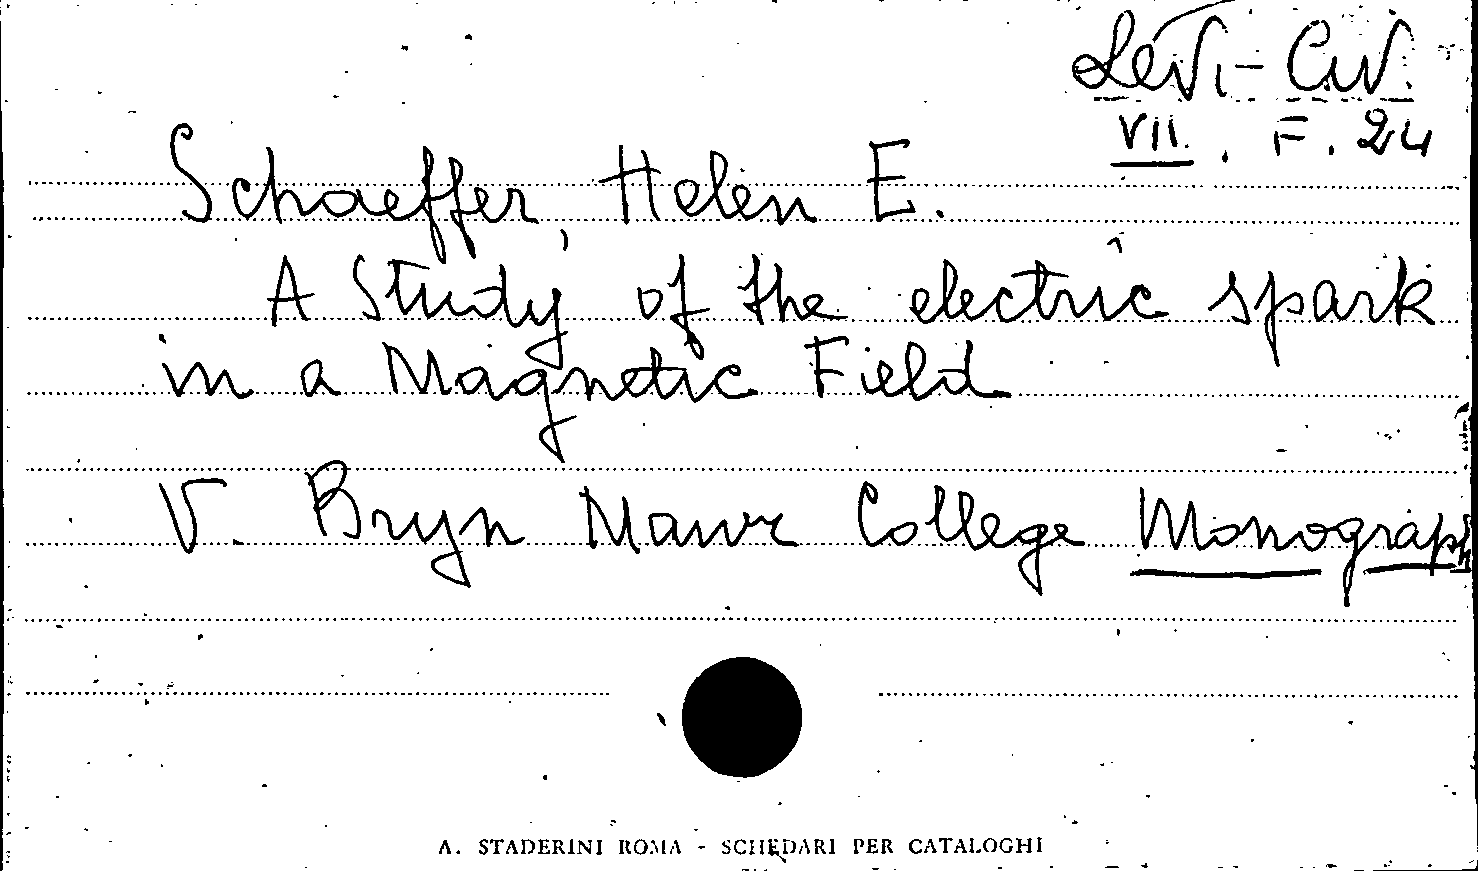 Levi-Civ.
VII. F. 24
Schaeffer, Helen E.
A Study of the electric spark
in a Magnetic Field
V. Bryn Mawr College Monograph
A. STADERINI ROMA - SCHEDARI PER CATALOGHI